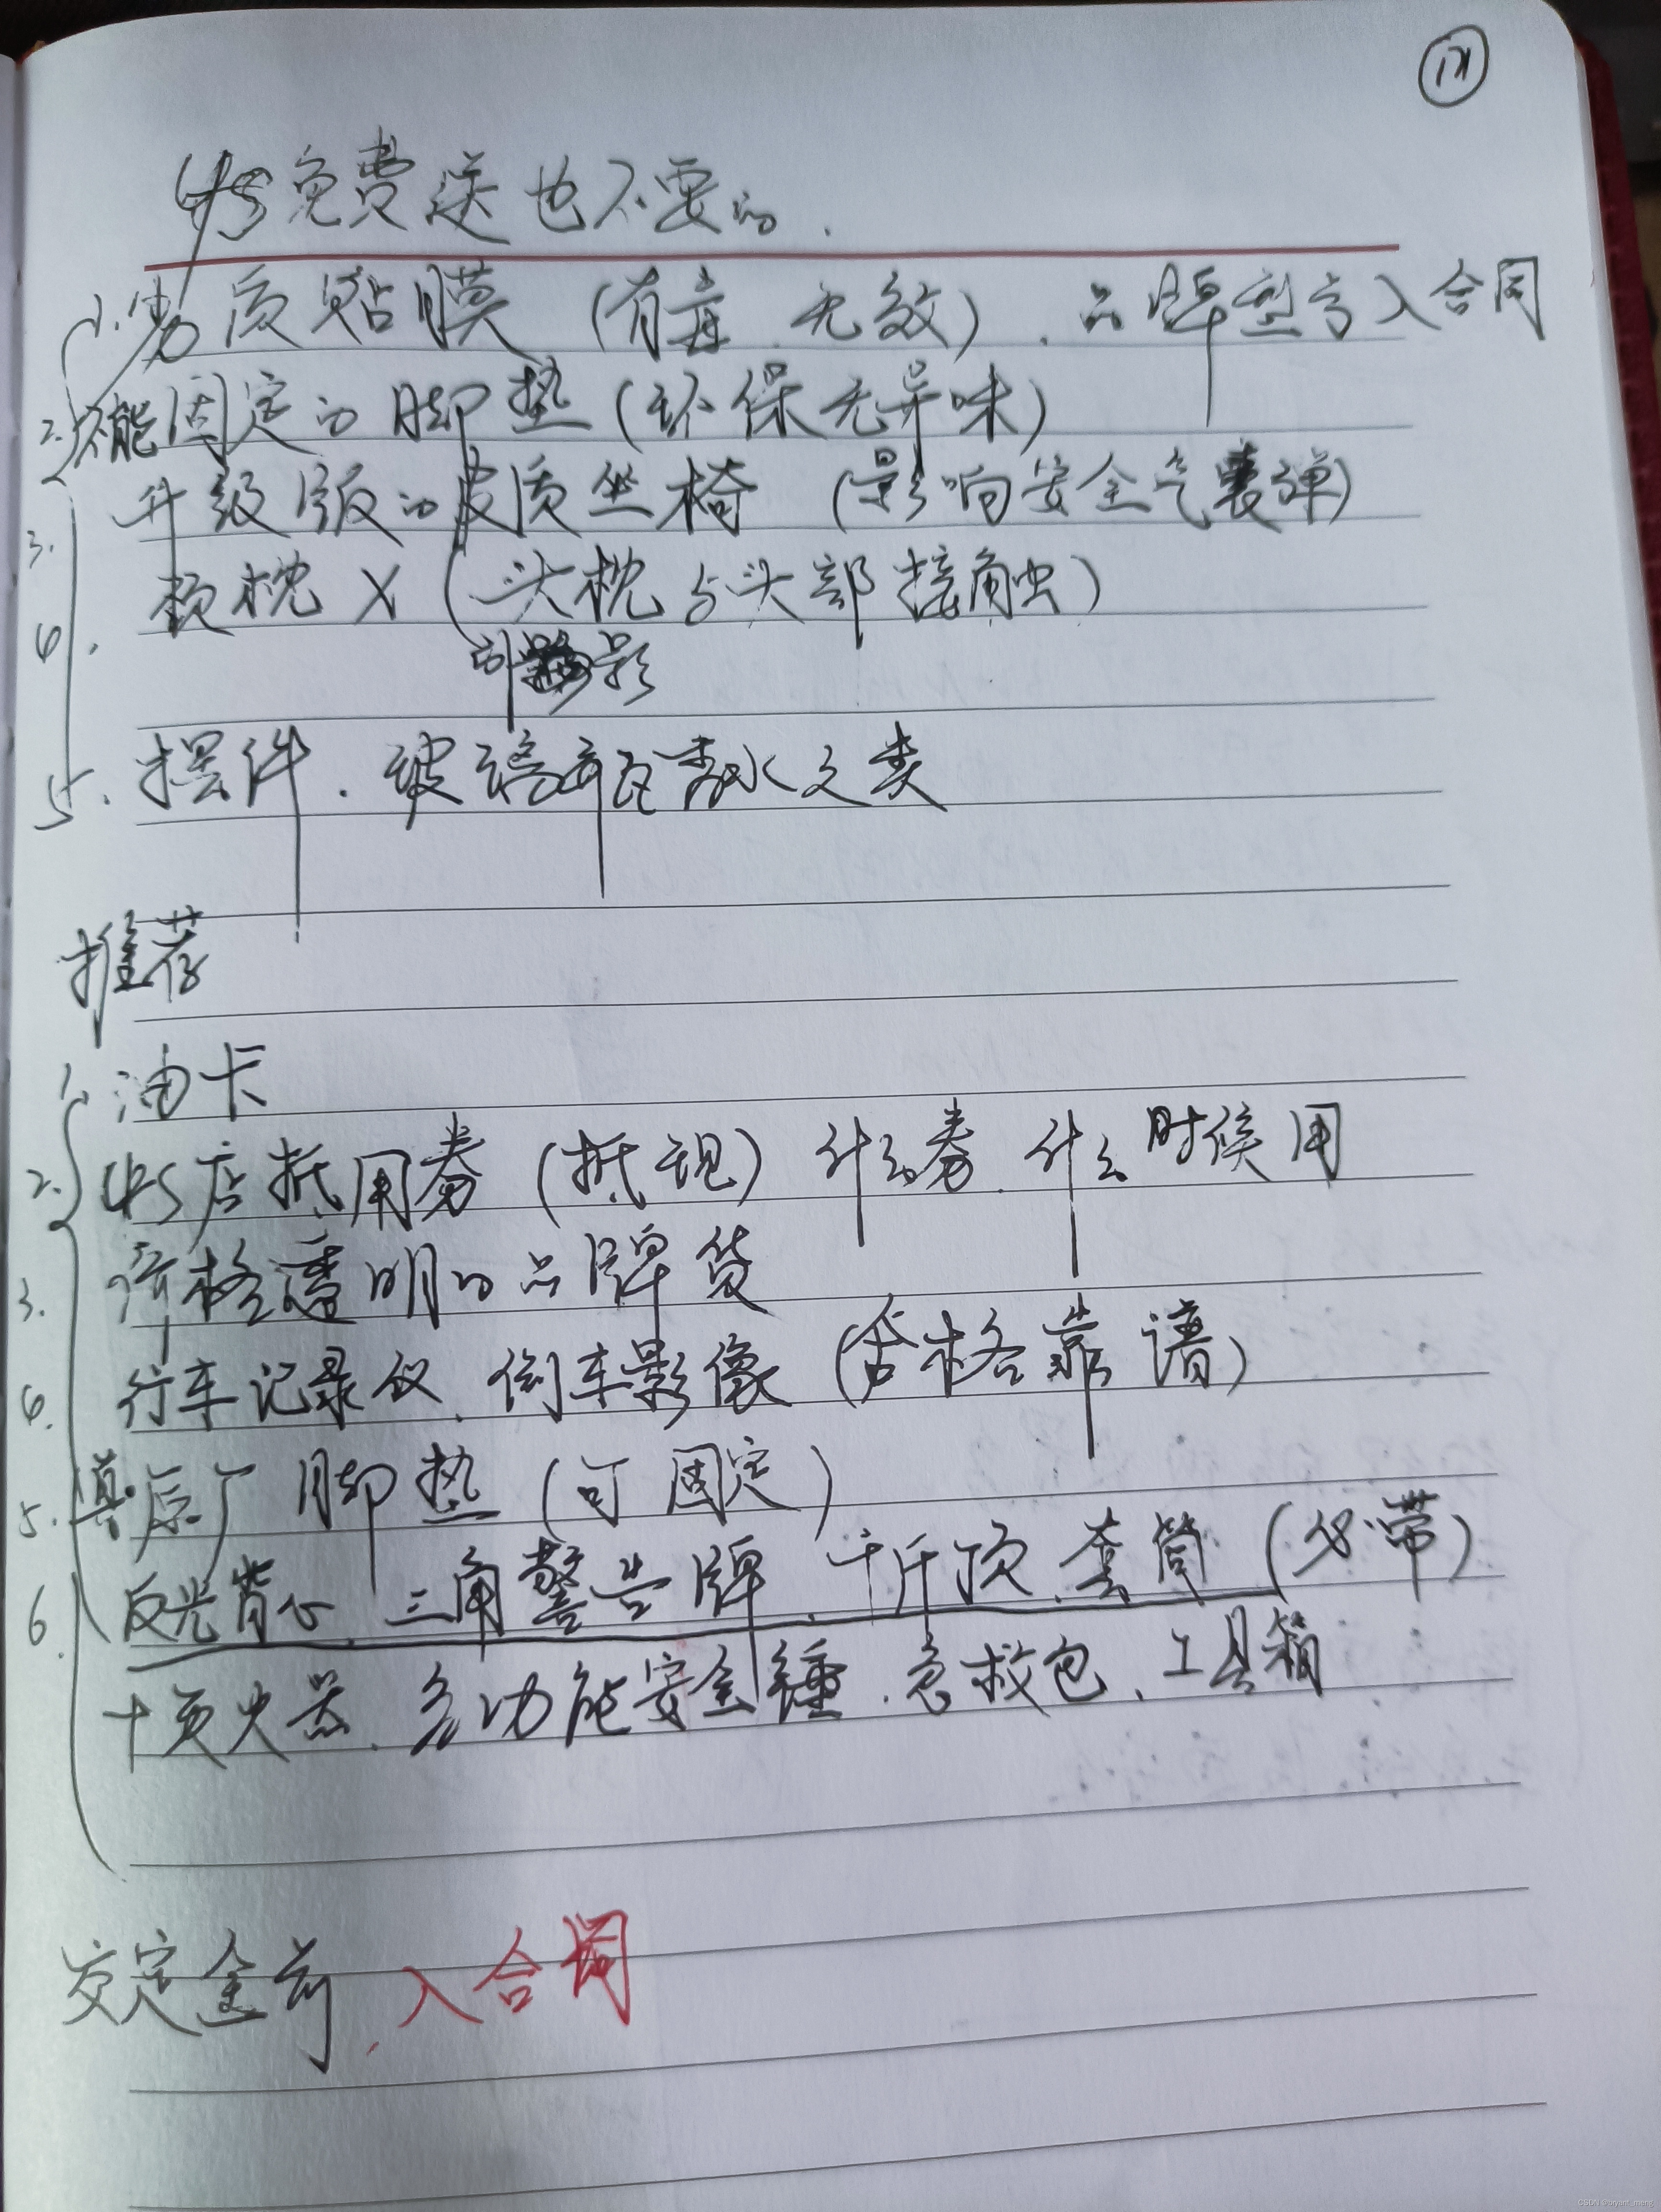 4S免费送也不要的.
1. 劣质贴膜 (有毒、无效)、品牌型号入合同
2. 不能固定的脚垫 (环保无异味)
3. 升级版的皮质坐椅 (影响安全气囊弹)
4. 颈枕 X (头枕与头部接触)
影
5. 摆件、玻璃瓶香水之类
推荐
1. 油卡
2. 4S店抵用券 (抵现) 什么券、什么时候用
3. 价格透明的品牌货
4. 行车记录仪、倒车影像 (合格靠谱)
5. 真原厂脚垫 (可固定)
6. 反光背心、三角警告牌、千斤顶、套筒 (必带)
灭火器、多功能安全锤、急救包、工具箱
交定金前、入合同
CSDN @bryant_meng